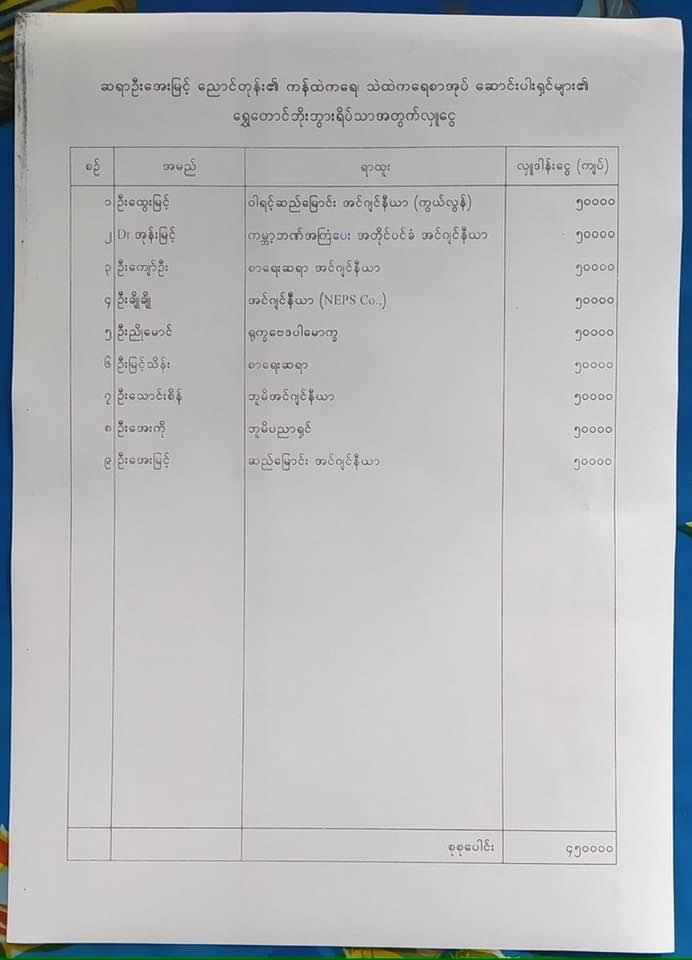 ဆရာဦးအေးမြင့် ညောင်တုန်း၏ ကန်ထဲကရေ၊ သဲထဲကရေစာအုပ် ဆောင်းပါးရှင်များ၏
ရွှေတောင်ဘိုးဘွားရိပ်သာအတွက်လှူငွေ
စဉ် အမည် ရာထူး လှူဒါန်းငွေ (ကျပ်)
၁ ဦးထွေးမြင့် ဝါရင့်ဆည်မြောင်း အင်ဂျင်နီယာ (ကွယ်လွန်) ၅၀၀၀၀
၂ Dr အုန်းမြင့် ကမ္ဘာ့ဘဏ်အကြံပေး အတိုင်ပင်ခံ အင်ဂျင်နီယာ ၅၀၀၀၀
၃ ဦးကျော်ဦး စာရေးဆရာ အင်ဂျင်နီယာ ၅၀၀၀၀
၄ ဦးချိုချို အင်ဂျင်နီယာ (NEPS Co.,) ၅၀၀၀၀
၅ ဦးညိုမောင် ရုက္ခဗေဒပါမောက္ခ ၅၀၀၀၀
၆ ဦးမြင့်သိန်း စာရေးဆရာ ၅၀၀၀၀
၇ ဦးသောင်းစိန် ဘူမိအင်ဂျင်နီယာ ၅၀၀၀၀
၈ ဦးအေးကို ဘူမိပညာရှင် ၅၀၀၀၀
၉ ဦးအေးမြင့် ဆည်မြောင်း အင်ဂျင်နီယာ ၅၀၀၀၀
စုစုပေါင်း ၄၅၀၀၀၀